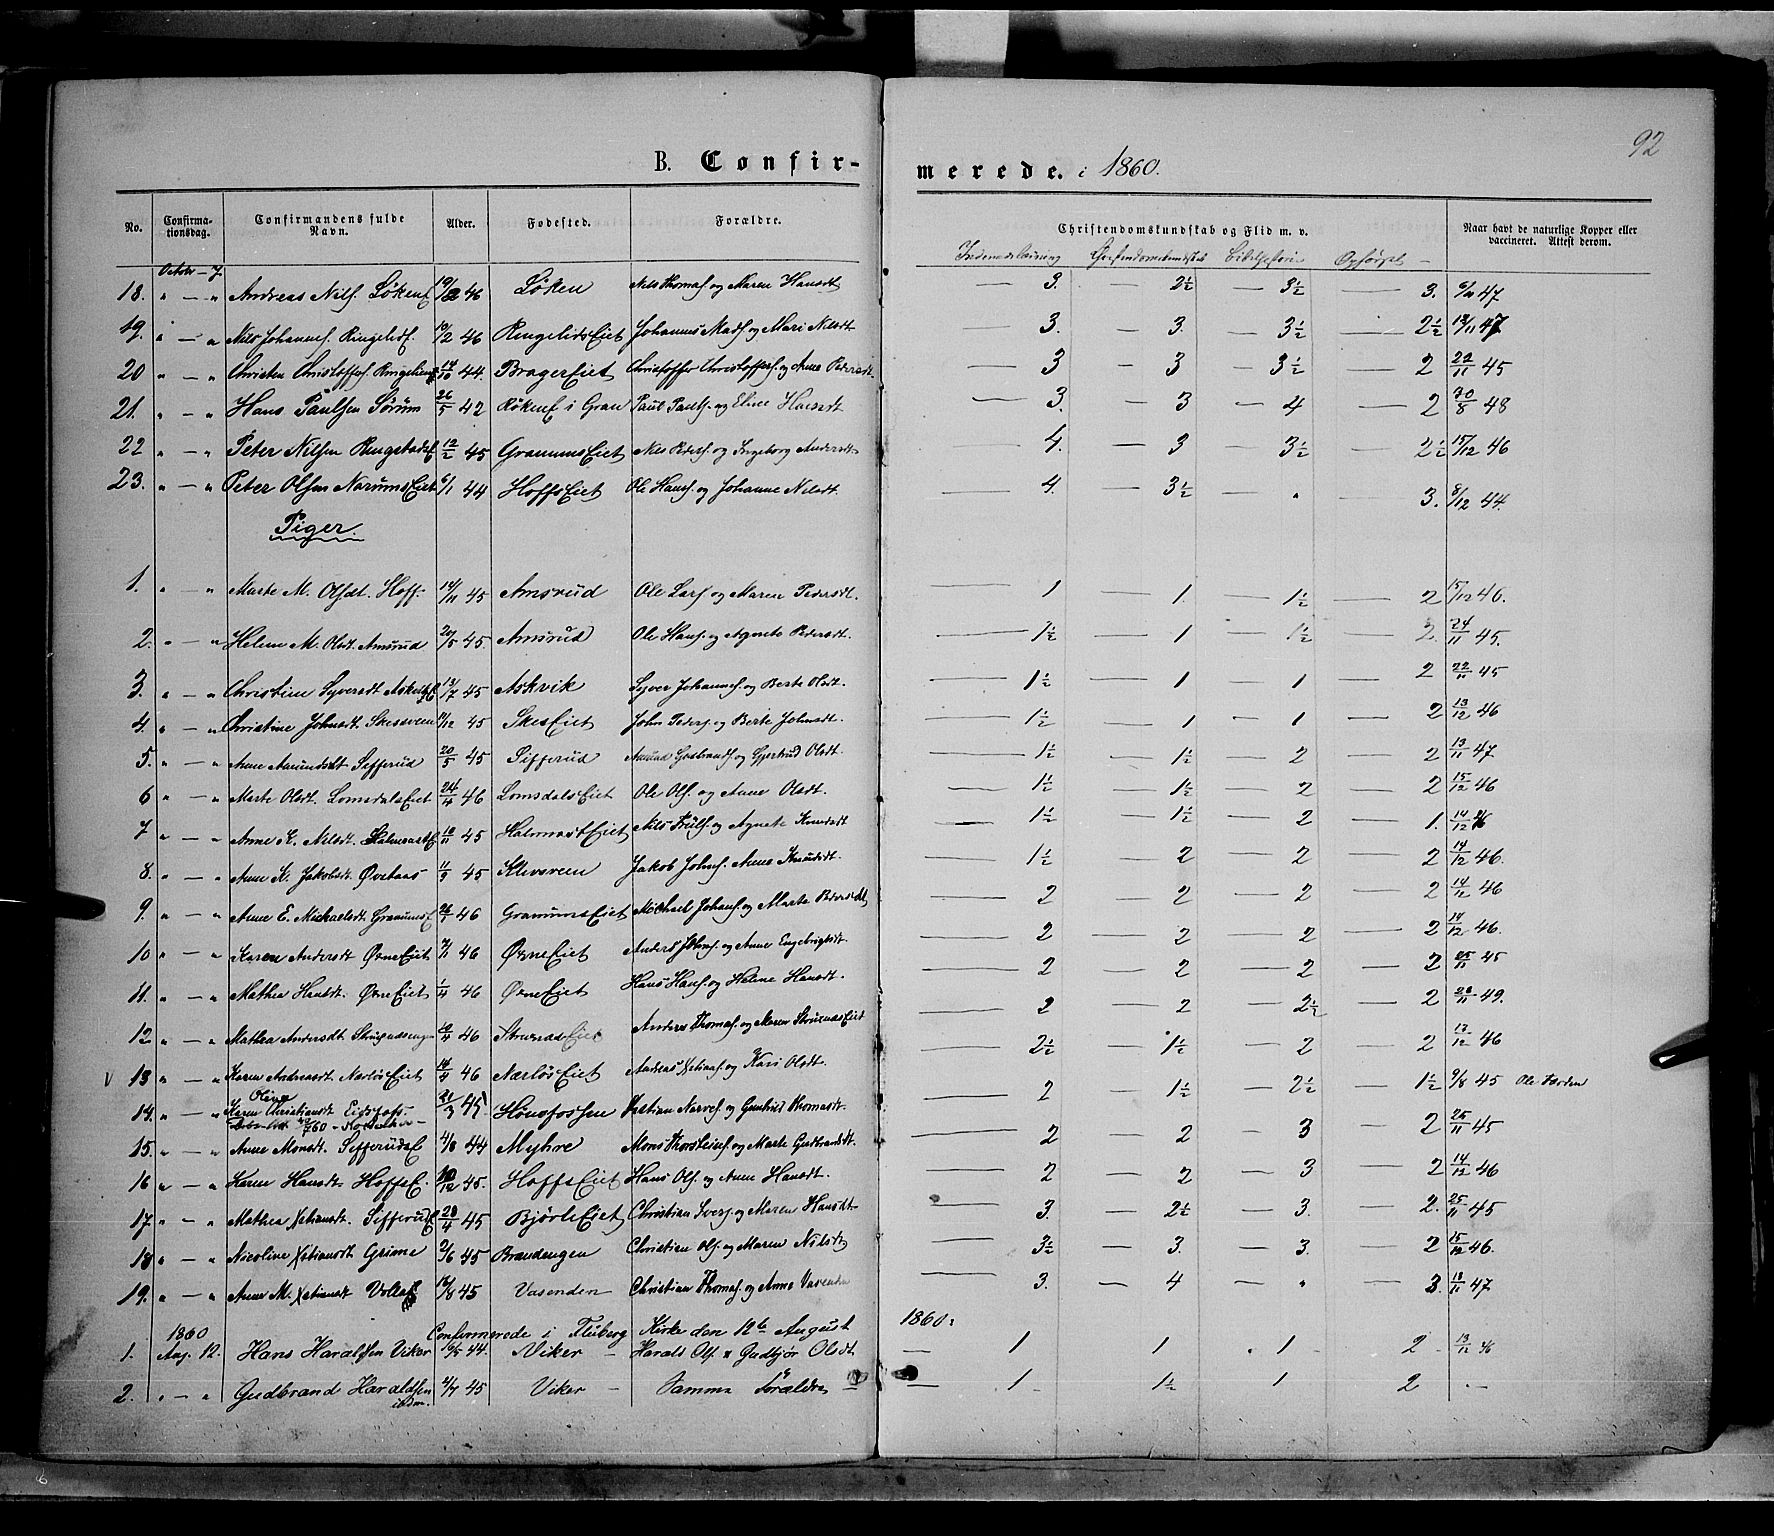 92
B. Confir-
merede. i 1860.
No. Confirma-tionsdag. Confirmandens fulde Navn. Alder. Fødested. Forældre. Christendomskundskab og Flid m. v. Naar havt de naturlige Kopper eller vaccineret. Attest derom.
Indenadslæsning Christendomskundskab Bibelhistorie Opførsel
Octobr - 7.
18. " — " Andreas Nils. Løken 46 Løken Nils Thomas. og Maren Hansdt 3. — 2½ — 3½ — 3. 47
19. " — " Nils Johannes. Ringelids. 10/2 46 RingelidsEiet Johannes Mads. og Mari Nilsdt 3. — 3. — 3½ — 2½ 12/11 47
20 " — " Christen Christoffers. 14/10 44. BragerEiet Christoffer Christoffers. og Anne Pedersdt. 3 — 3 — 3½ — 2 22/11 45
21. " — " Hans Paulsen Sørum 26/5 42 i Gran Paul Pauls. og Eline Hansdt 3. — 3 — 4 — 2 30/8 48
22 " — " Peter Nilsen 12/2 45 GranumsEiet Nils Peders. og Ingeborg Andersdt 4. — 3 — 3½ — 2½ 15/12 46
23. " — " Peter Olsen NarumsEiet 6/1 44 HoffsEiet Ole Hans. og Johanne Nilsdt. 4. — 3½ — " — 3. 8/12 44.
Piger.
1. " — " Marte M. Olsdt. Hoff. 14/11 45 Amsrud Ole Lars. og Maren Pedersdt. 1 — 1. — 1½ — 2 15/12 46.
2. " — " Helene M. Olsdt. Amsrud 20/5 45. Amsrud Ole Hans. og Agnete Pedersdt. 1½ — 1 — 1½ — 2. 24/11 45.
3. " — " Christine Syversdt 13/7 45 Askvik Syver Johannes. og Berte Olsdt. 1½ — 1 — 1 — 2 22/11 45
4. " — " Christine Johnsdt. 45 SkesEiet John Peders. og Berte Johnsdt. 1½ — 1 — 1 — 2 13/12 46
5. " — " Anne Amundsdt Sefferud 20/5 45 Sefferud Amund Gudbrands. og Gjertrud Olsdt. 1½ — 1½ — 2 — 2 13/11 47
6 " — " Marte Olsdt. LomsdalsEiet 24/4 46 LomsdalsEiet Ole Ols. og Anne Olsdt. 1½ — 1½ — 2 — 2 15/12 46
7 " — " Anne K. Nilsdt. 10/11 45 HalmrastEiet Nils Truls. og Agnete Knudsdt 1½ — 1½ — 2 — 1. 14/12 46
8. " — " Anne K. Jakobsdt Øvetaas 11/9 45 Klevsveen Jakob Johns. Anne Knudsdt. 1½ — 2 — 2 — 2 14/12 46.
9. " — " Anne E. Michaelsdt. 46 GranumsEiet Michael Johans. og Marte Pedersdt 2 — 2 — 2 — 2 14/12 46
10 " — " Karen Andersdt ØrneEiet 46 ØrneEiet Anders Johns. og Anne Engebrigtsdt. 2 — 2 — 2 — 2 14/12 46.
11. " — " Mathea Hansdt. ØrneEiet 46 ØrneEiet Hans Hans. og Helene Hansdt. 2 — 2 — 2 — 2 25/11 45
12 " — " Mathea Andersdt 46 Anders Thomas. og Maren 2 — 2 — 2½ — 2 28/11 49.
13 " — " Karen Andreasdt NærløsEiet 14/4 46 NærløsEiet Andreas Xstians. og Kari Olsdt. 2½ — 1½ — 2 — 2 13/12 46
14. " — " Karen Oline Christiansdt Eidsfoss- 21/3 45. Hønefossen Xstian Narves. og Gunhild Thomasdt. 2 — 1½ — 2½ — 1½ 9/8 45
15. " — " Anne Monsdt. 4/8 44 Myhre Mons Thorsteins. og Marte Gudbrandsdt. 2 — 2 — 3 — 2 25/11 45
16 " — " Karen Hansdt. HoffsE. 10/12 45. HoffsEiet Hans Ols. og Anne Hansdt. 2 — 2 — 3 — 2 14/12 46
17. " — " Mathea Xstiansdt. 28/4 45 BjørleEiet Christian Ivers. og Maren Hansdt 3. — 2½ — 3. — 2. 25/11 45
18 " — " Nicoline Xstiansdt Grime 2/6 45 Brandengen Christian Ols. og Maren Nilsdt 3½ — 3. — 3. — 2 15/12 46.
19. " — " Anne M. Xstiansdt 12/8 45 Vasenden Christian Thomas. og Anne 3. — 4 — " — 3. 18/11 47
1860 Confirmerede i Fluberg Kirke den 12te August 1860:
1. Aug. 12. Hans Haraldsen Viker 16/5 44. Viker — Harald Ols. & Gudbjør Olsdt — 1 1 1 2 13/12 46
2. " — " Gudbrand Haraldsen ibdm. 4/7 45 Viker — Samme Forældre — — 1 1½ 1 2 " —